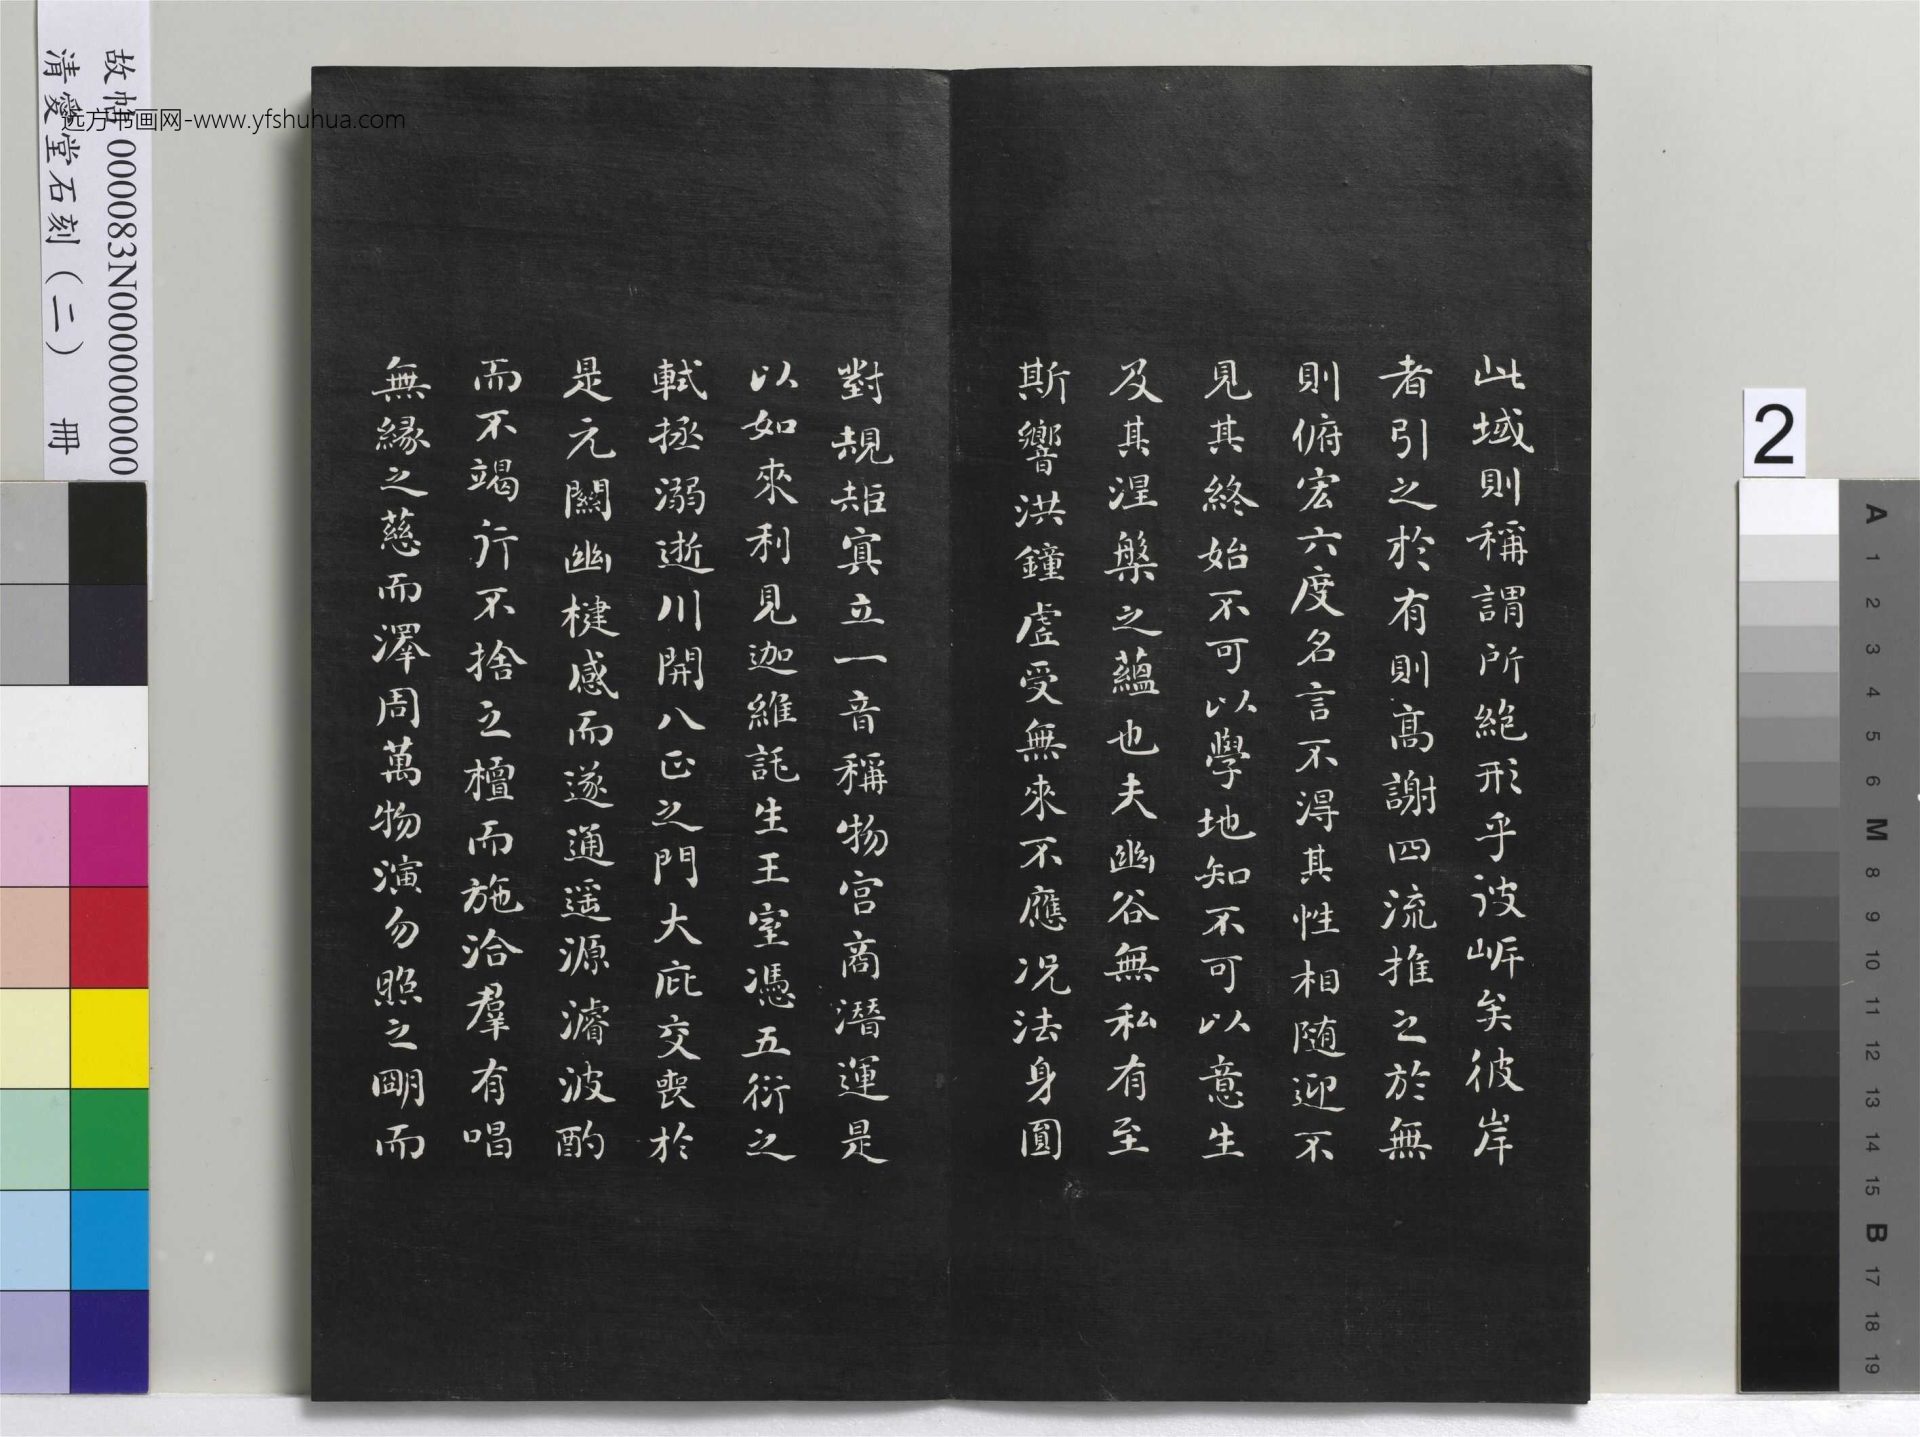 此域則稱謂所絶形乎彼岸矣彼岸
者引之於有則高謝四流推之於無
則俯宏六度名言不得其性相随迎不
見其終始不可以學地知不可以意生
及其涅槃之蘊也夫幽谷無私有至
斯響洪鐘虛受無來不應况法身圓
對規矩冥立一音稱物宮商潛運是
以如來利見迦維託生王室憑五衍之
軾拯溺逝川開八正之門大庇交喪於
是元關幽楗感而遂通遥源濬波酌
而不竭行不捨之檀而施洽羣有唱
無緣之慈而澤周萬物演勿照之明而
故帖 000083N000000000
清愛堂石刻（二） 冊
远方书画网-www.yfshuhua.com
2
A 1 2 3 4 5 6 M 8 9 10 11 12 13 14 15 B 17 18 19